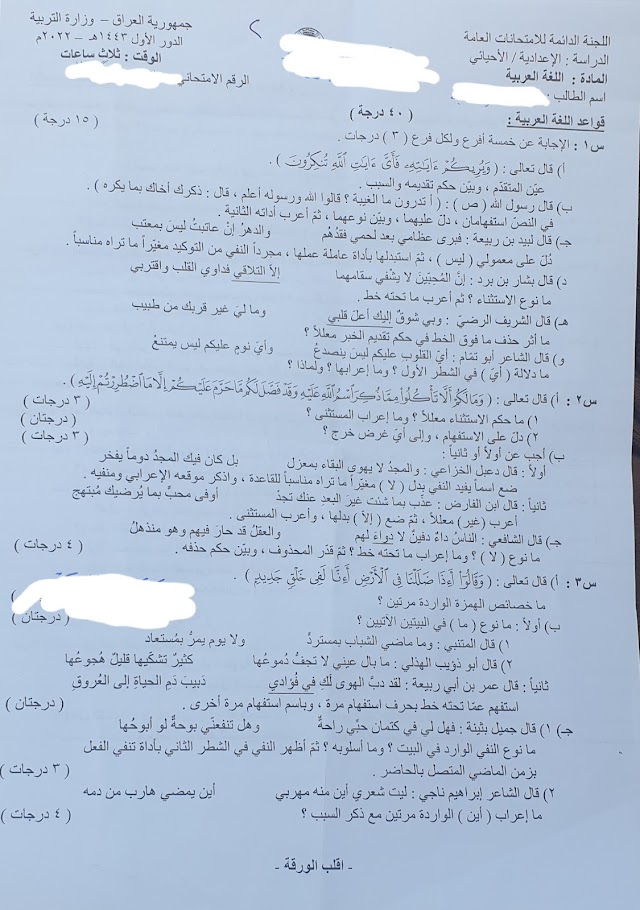 جمهورية العراق – وزارة التربية
الدور الأول ١٤٤٣هـ – ٢٠٢٢م
الوقت : ثلاث ساعات
الرقم الامتحاني
٢
اللجنة الدائمة للامتحانات العامة
الدراسة : الإعدادية / الأحيائي
المادة : اللغة العربية
اسم الطالب :
قواعد اللغة العربية : ( ٤٠ درجة )
س١ : الإجابة عن خمسة أفرع ولكل فرع ( ٣ ) درجات . ( ١٥ درجة )
أ) قال تعالى : ( وَيُرِيكُمْ ءَايَـٰتِهِۦ فَأَىَّ ءَايَـٰتِ ٱللَّهِ تُنكِرُونَ ) .
عيّن المتقدّم ، وبيّن حكم تقديمه والسبب .
ب) قال رسول الله ( ص ) : ( أ تدرون ما الغيبة ؟ قالوا الله ورسوله أعلم ، قال : ذكرك أخاك بما يكره ) .
في النصّ استفهامان ، دلّ عليهما ، وبيّن نوعهما ، ثمّ أعرب أداته الثانية .
جـ) قال لبيد بن ربيعة : فبرى عظامي بعد لحمي فقدُهُم والدهرُ إنْ عاتبتُ ليسَ بمعتب
دُلّ على معمولي ( ليس ) ، ثمّ استبدلها بأداة عاملة عملها ، مجرداً النفي من التوكيد مغيّراً ما تراه مناسباً .
د) قال بشار بن برد : إنّ المُحبّينَ لا يشْفي سقامهما إلاّ التلاقي فداوي القلب واقتربي
ما نوع الاستثناء ؟ ثم أعرب ما تحته خط .
هـ) قال الشريف الرضيّ : وبي شوقٌ إليك أعلَ قلبي وما ليَ غير قربك من طبيب
ما أثر حذف ما فوق الخط في حكم تقديم الخبر معللاً ؟
و) قال الشاعر أبو تمّام : أيّ القلوب عليكم ليس ينصدعُ وأيّ نومٍ عليكم ليس يمتنعُ
ما دلالة ( أيّ ) في الشطر الأول ؟ وما إعرابها ؟ ولماذا ؟
س٢ : أ) قال تعالى : ( وَمَا لَكُمْ أَلَّا تَأْكُلُوا۟ مِمَّا ذُكِرَ ٱسْمُ ٱللَّهِ عَلَيْهِ وَقَدْ فَصَّلَ لَكُم مَّا حَرَّمَ عَلَيْكُمْ إِلَّا مَا ٱضْطُرِرْتُمْ إِلَيْهِ ) .
١) ما حكم الاستثناء معللاً ؟ وما إعراب المستثنى ؟ ( ٣ درجات )
٢) دلّ على الاستفهام ، وإلى أيّ غرض خرج ؟ ( درجتان )
ب) أجب عن أولاً أو ثانياً : ( ٣ درجات )
أولاً : قال دعبل الخزاعي : والمجدُ لا يهوى البقاء بمعزل بل كان فيك المجدُ دوماً يفخر
ضع اسماً يفيد النفي بدل ( لا ) مغيّراً ما تراه مناسباً للقاعدة ، واذكر موقعه الإعرابي ومنفيه .
ثانياً : قال ابن الفارض : عذّب بما شئت غير البعدِ عنك تجدْ أوفى محبٍّ بما يُرضيك مُبتهج
أعرب (غير) معللاً ، ثمّ ضع ( إلاّ ) بدلها ، وأعرب المستثنى .
جـ) قال الشافعي : الناسُ داءٌ دفينٌ لا دواءَ لهم والعقلُ قد حارَ فيهم وهو منذهلُ
ما نوع ( لا ) ؟ وما إعراب ما تحته خط ؟ ثمّ قدّر المحذوف ، وبيّن حكم حذفه . ( ٤ درجات )
س٣ : أ) قال تعالى : ( وَقَالُوٓا۟ أَءِذَا ضَلَلْنَا فِى ٱلْأَرْضِ أَءِنَّا لَفِى خَلْقٍ جَدِيدٍ ) .
ما خصائص الهمزة الواردة مرتين ؟
ب) أولاً : ما نوع ( ما ) في البيتين الآتيين ؟ ( درجتان )
١) قال المتنبي : وما ماضي الشباب بمستردٍّ ولا يوم يمرُّ بمُستعاد
٢) قال أبو ذؤيب الهذلي : ما بال عيني لا تجفُّ دُموعُها كثيرٌ تشكّيها قليلٌ هُجوعُها
ثانياً : قال عمر بن أبي ربيعة : لقد دبَّ الهوى لَكِ في فُؤادي دَبيبَ دَمِ الحياةِ إلى العُروقِ
استفهم عمّا تحته خط بحرف استفهام مرة ، وباسم استفهام مرة أخرى . ( درجتان )
جـ) ١) قال جميل بثينة : فهل لي في كتمان حبّي راحةٌ وهل تنفعنّي بوحةٌ لو أبوحُها
ما نوع النفي الوارد في البيت ؟ وما أسلوبه ؟ ثمّ أظهر النفي في الشطر الثاني بأداة تنفي الفعل
بزمن الماضي المتصل بالحاضر . ( ٣ درجات )
٢) قال الشاعر إبراهيم ناجي : ليت شعري أين منه مهربي أين يمضي هارب من دمه
ما إعراب ( أين ) الواردة مرتين مع ذكر السبب ؟ ( ٤ درجات )
- اقلب الورقة -